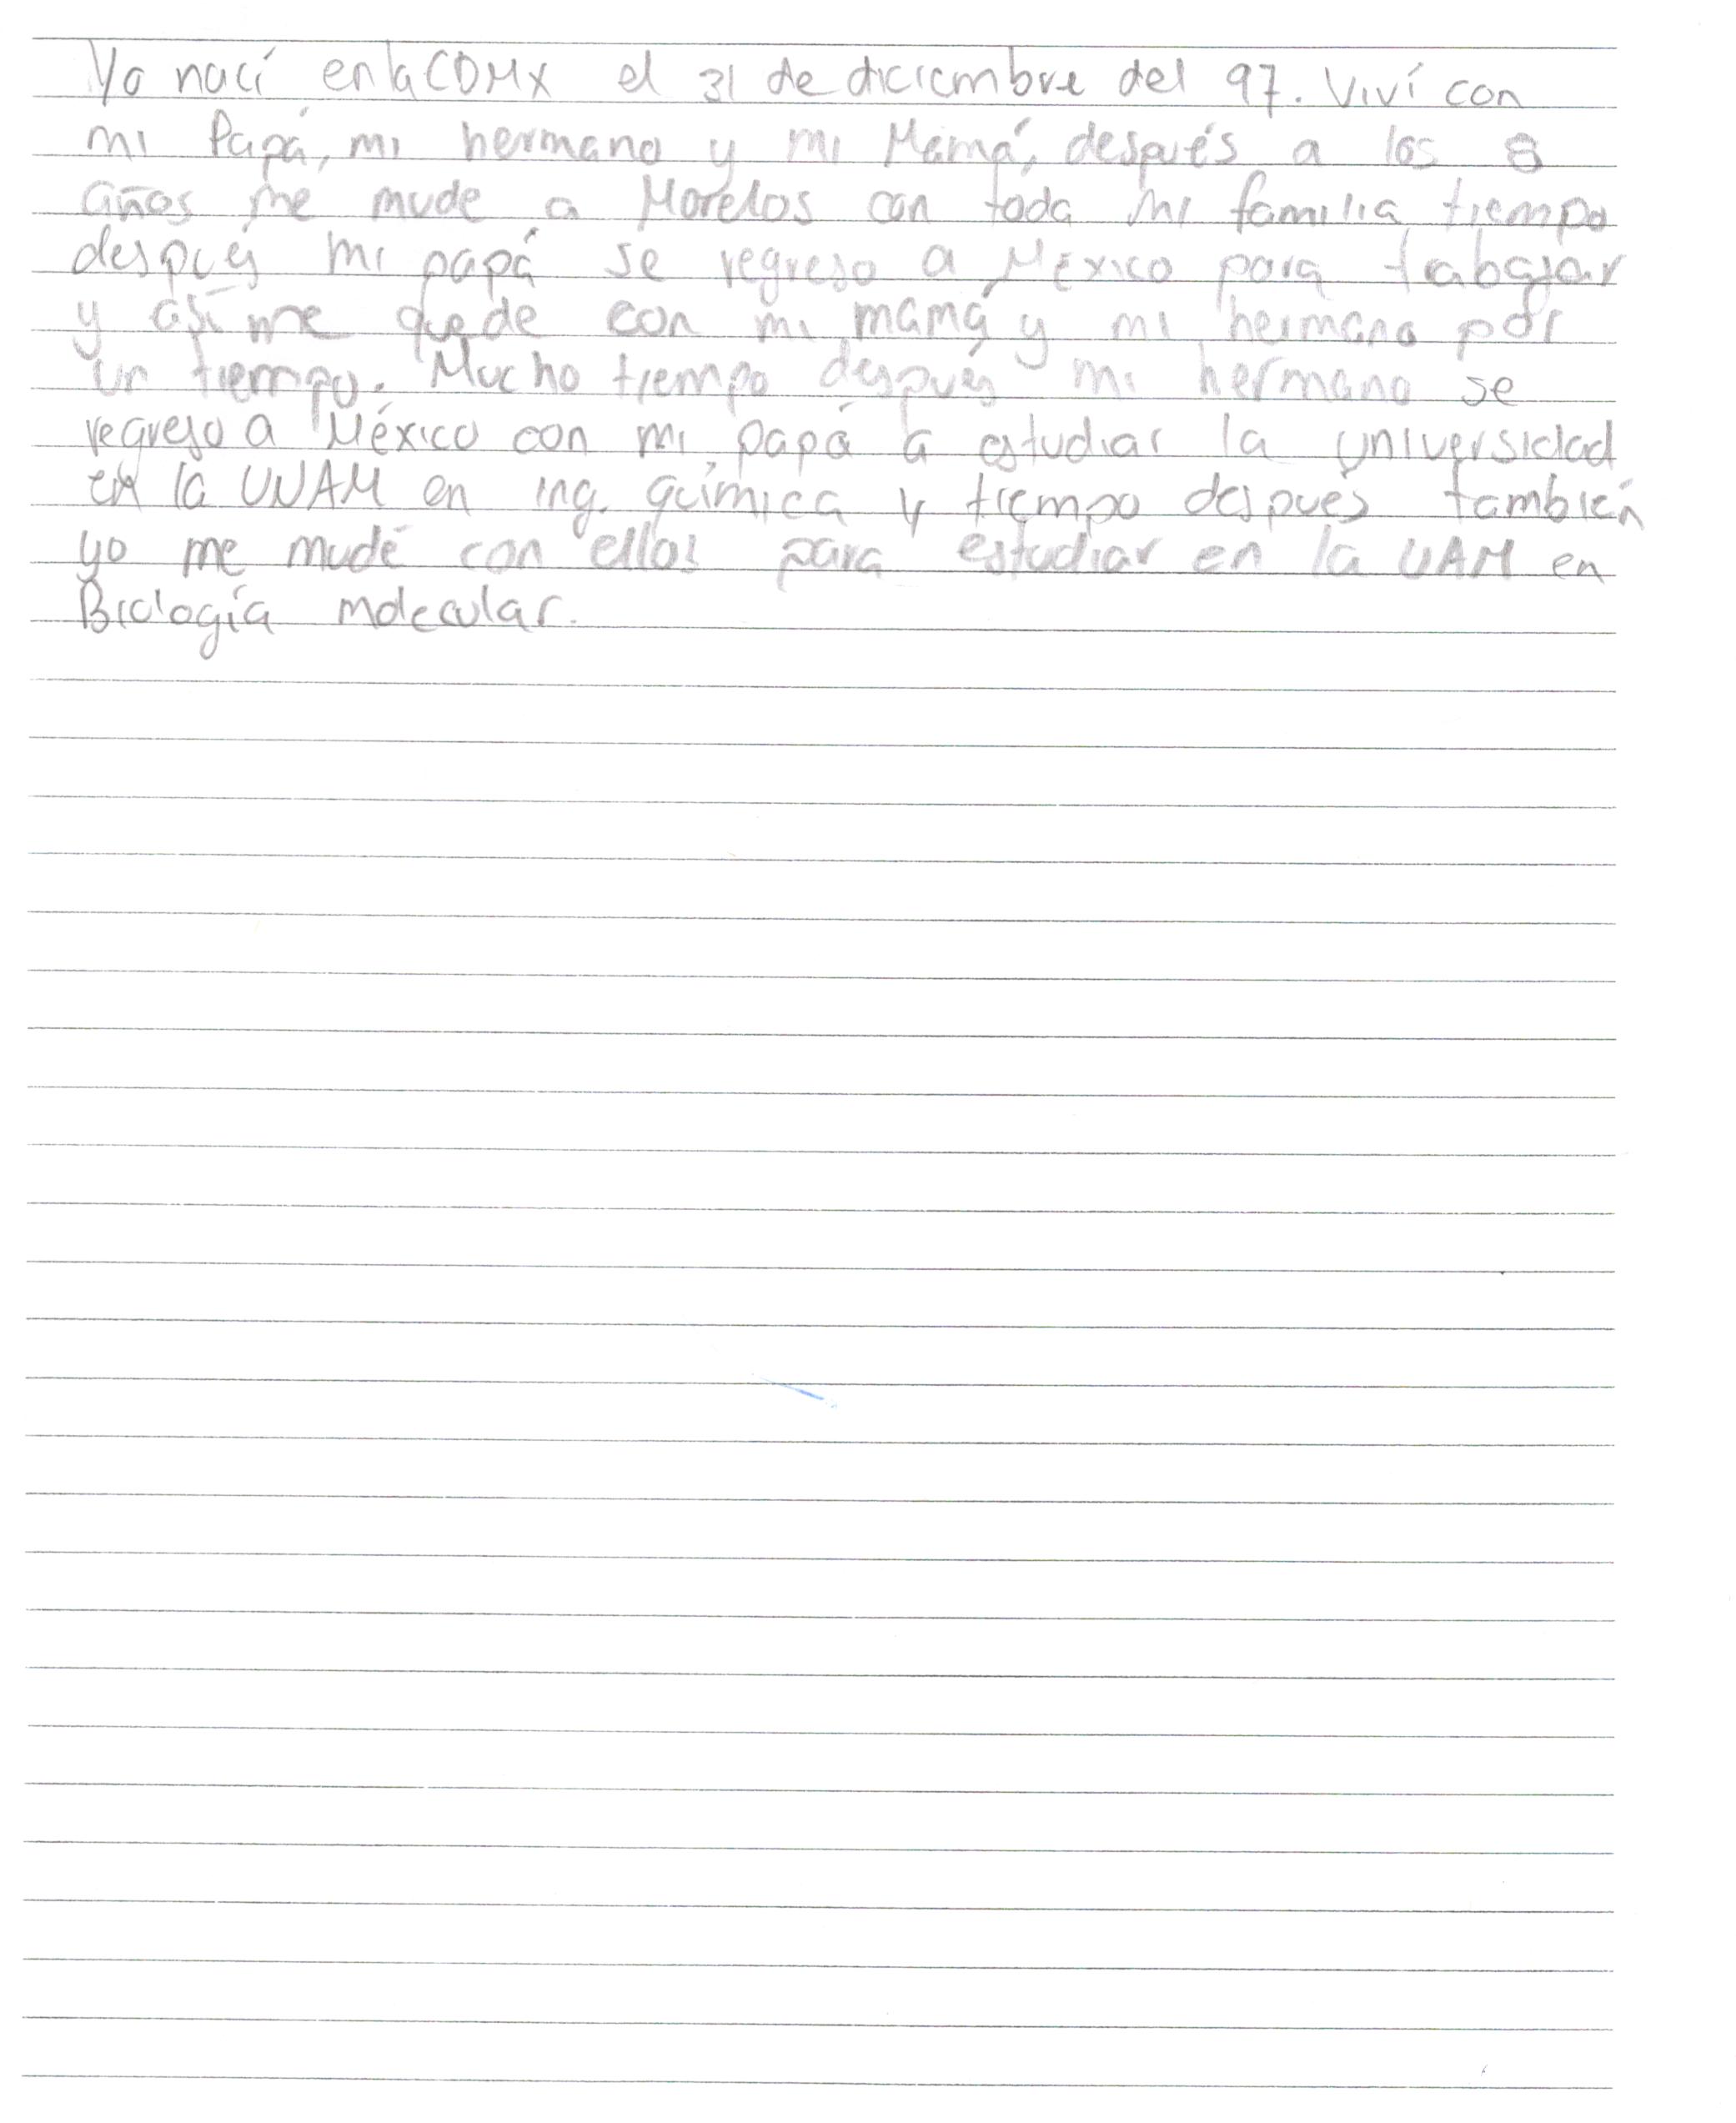 Yo nací en la CDMX el 31 de diciembre del 97. Viví con
mi Papá, mi hermano y mi Mamá, después a los 8
años me mude a Morelos con toda mi familia tiempo
después mi papá se regreso a México para trabajar
y así me quede con mi mamá y mi hermano por
un tiempo. Mucho tiempo después mi hermano se
regreso a México con mi papá a estudiar la universidad
en la UNAM en ing. química y tiempo después también
yo me mudé con ellos para estudiar en la UAM en
Biología molecular.